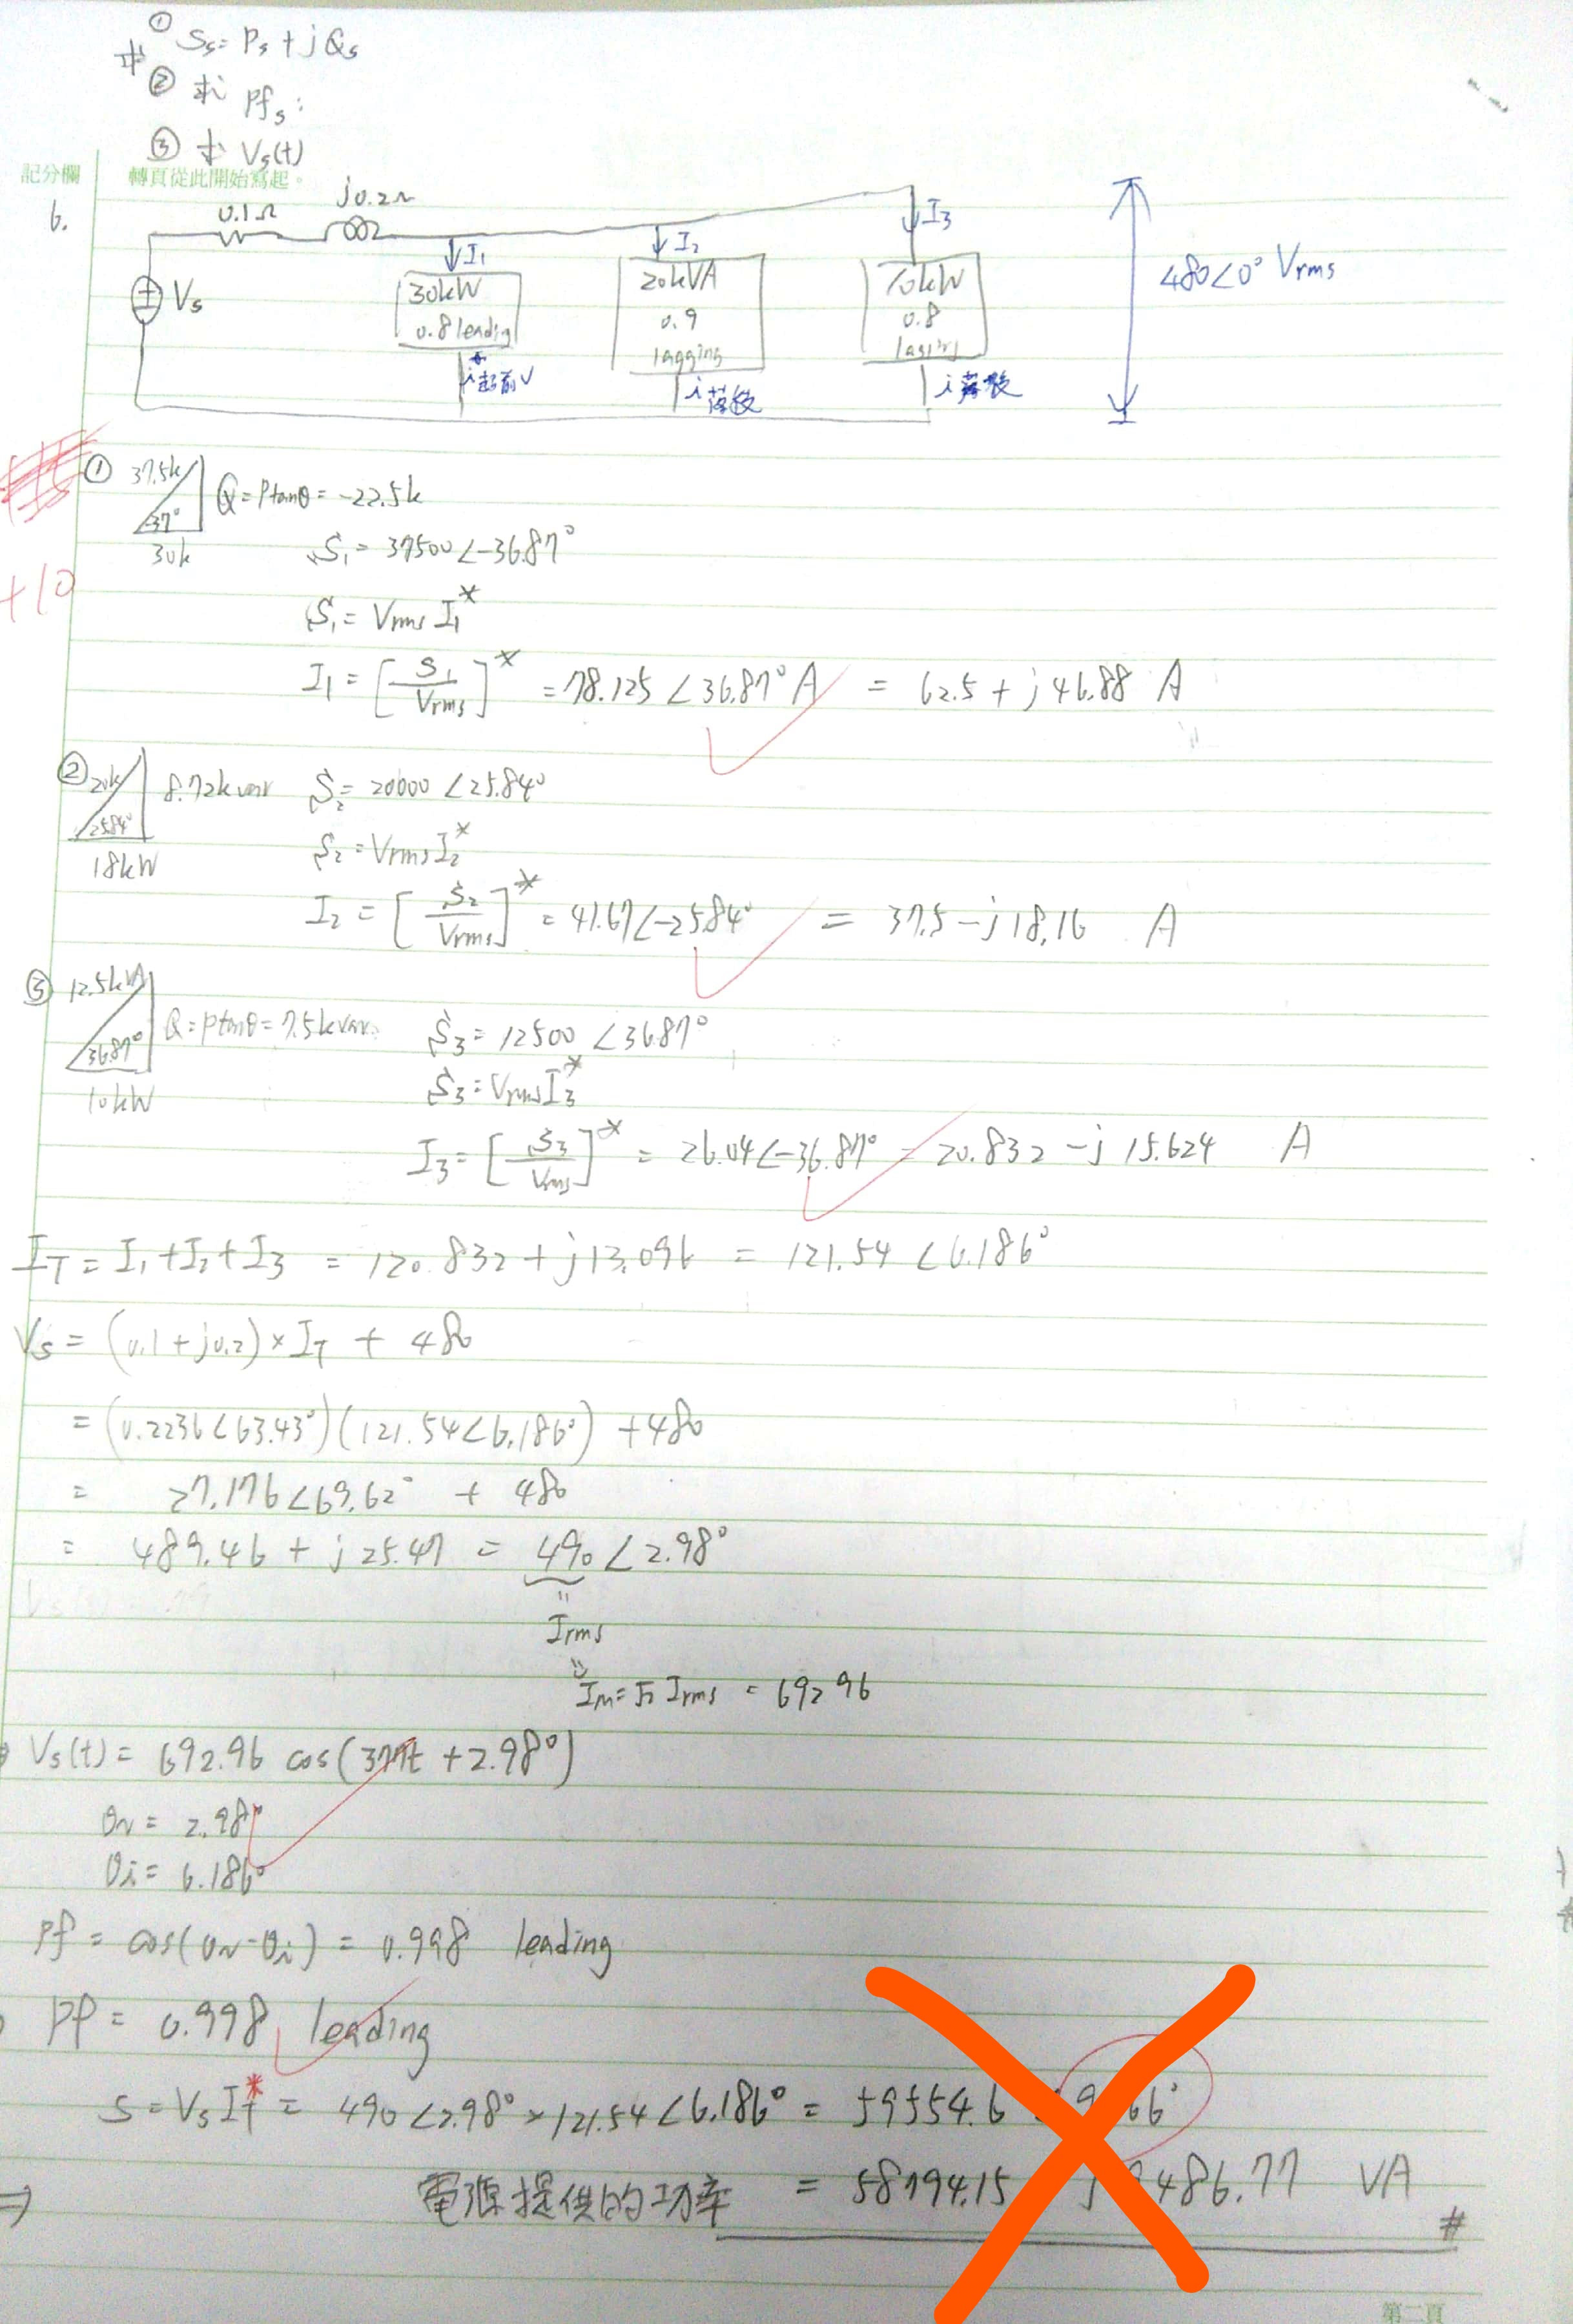 求 ① Ss = Ps + jQs
② 求 Pfs :
③ 求 Vs(t)
記分欄 轉頁從此開始寫起。
6.
0.1Ω j0.2Ω
I1 I2 I3
Vs
30kW 20kVA 10kW
0.8 leading 0.9 0.8
lagging
480∠0° Vrms
i超前V i落後 i落後
① 37.5k Q = Ptanθ = -22.5k
-37°
30k S1 = 37500∠-36.87°
+10
S1 = Vrms I1*
I1 = [S1/Vrms]* = 78.125∠36.87° A = 62.5 + j46.88 A
② 20k 8.72kvar S2 = 20000∠25.84°
25.84°
18kW S2 = Vrms I2*
I2 = [S2/Vrms]* = 41.67∠-25.84° = 37.5 - j18.16 A
③ 12.5kVA Q = Ptanθ = 7.5kvar S3 = 12500∠36.87°
36.87°
10kW S3 = Vrms I3*
I3 = [S3/Vrms]* = 26.04∠-36.87° = 20.832 - j15.624 A
IT = I1 + I2 + I3 = 120.832 + j13.096 = 121.54∠6.186°
Vs = (0.1 + j0.2) × IT + 480
= (0.2236∠63.43°)(121.54∠6.186°) + 480
= 27.176∠69.62° + 480
= 489.46 + j25.47 = 490∠2.98°
"
Irms
"
Im = √2 Irms = 692.96
Vs(t) = 692.96 cos(377t + 2.98°)
θv = 2.98°
θi = 6.186°
Pf = cos(θv - θi) = 0.998 leading
Pf = 0.998 leading
S = Vs IT* = 490∠2.98° × 121.54∠6.186° = 59554.6
⇒ 電源提供的功率 = 58794.15 VA #
第二頁